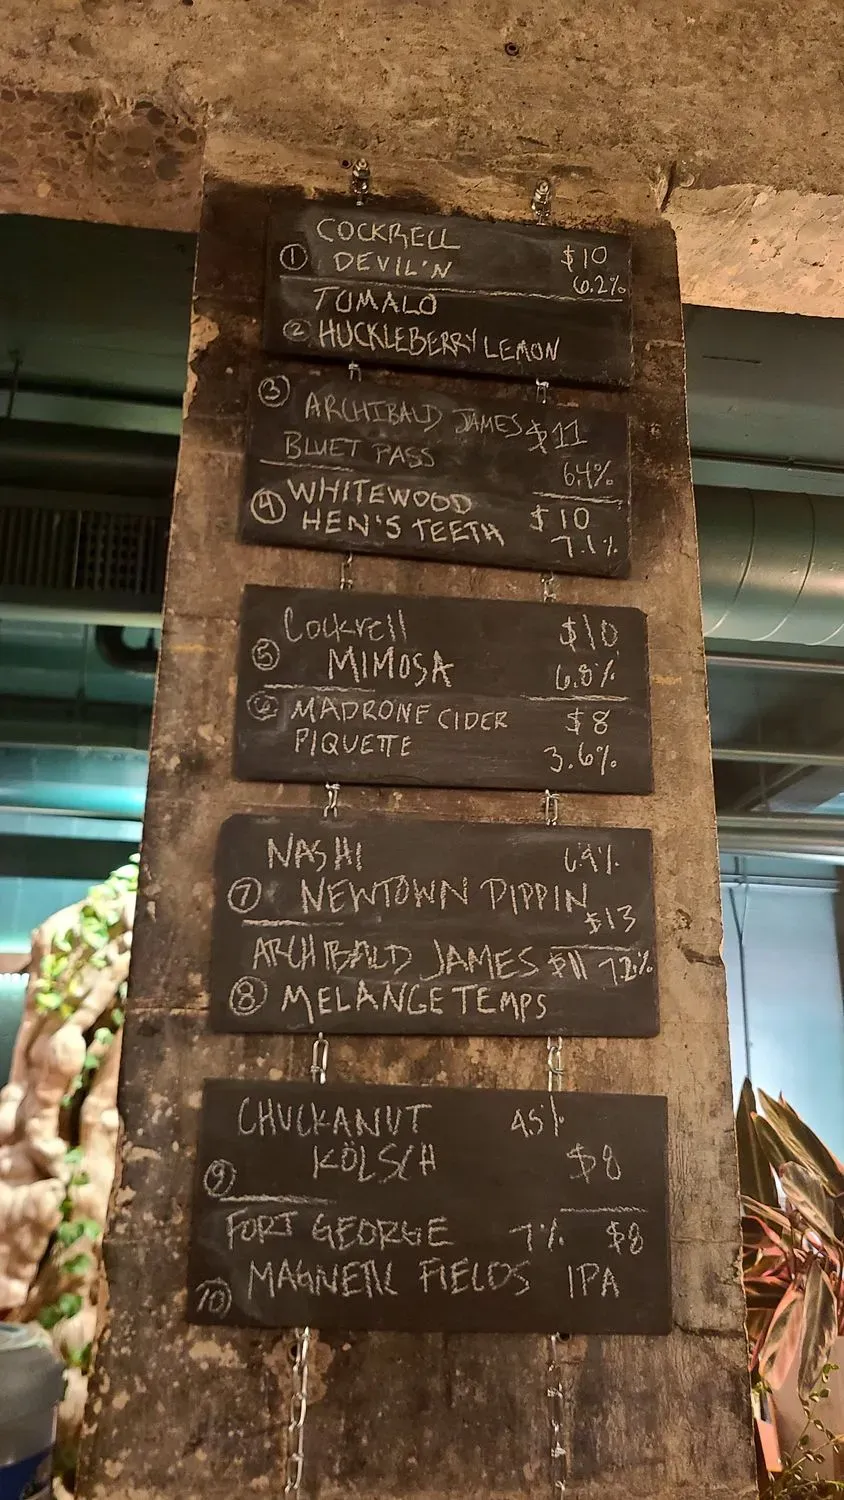 COCKRELL
① DEVIL'N $10
6.2%
TUMALO
② HUCKLEBERRY LEMON
③ ARCHIBALD JAMES $11
BLUET PASS 6.4%
④ WHITEWOOD $10
HEN'S TEETH 7.1%
Cockrell $10
⑤ MIMOSA 6.8%
⑥ MADRONE CIDER $8
PIQUETTE 3.6%
NASHI 6.9%
⑦ NEWTOWN PIPPIN
$13
ARCHIBALD JAMES $11 7.2%
⑧ MELANGE TEMPS
CHUCKANUT 4.5%
KÖLSCH $8
⑨
FORT GEORGE 7% $8
⑩ MAGNETIC FIELDS IPA